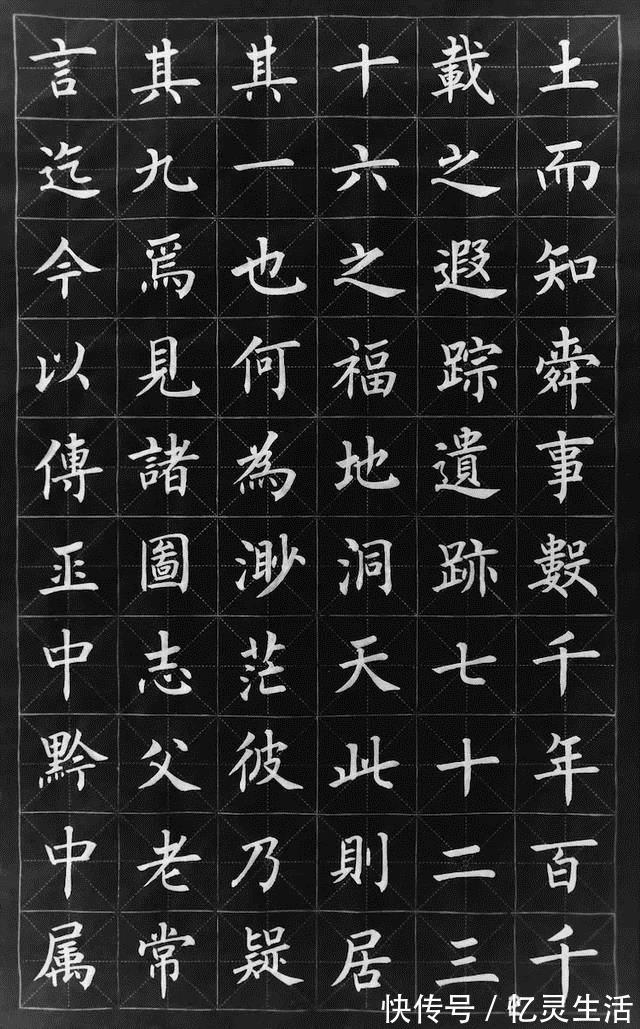 土而知舜事數千年百千
載之遐踪遺跡七十二三
十六之福地洞天此則居
其一也何為渺茫彼乃疑
其九焉見諸圖志父老常
言迄今以傳中黔中属
快传号 / 忆灵生活